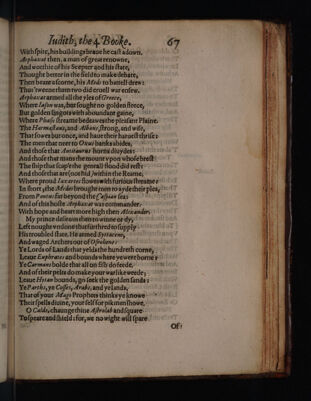 Iudith, the 4. Booke. 67
With spite, his buildings braue he cast adown.
Arphaxat then, a man of great renowne,
And worthie of his Scepter and his state,
Thought better in the field to make debate,
Then beare a scorne, his Meds to battell drew:
Thus twene them two did cruell war ensew.
Arphaxat armed all the yles of Greece,
Where Iason was, but sought no golden fleece,
But golden lingots with aboundant gaine,
Where Phasis streame bedewes the pleasant Plaine.
The Harmastans, and Albans strong, and wise,
That sowes but once, and haue their haruest thrise:
The men that neer to Oxus bankes abides,
And those that Antitaurus horns diuydes:
And those that mans the mount vpon whose brest
The ship that scap't the generall flood did rest:
And those that are (not hid) within the Reame,
Where proud Iaxartes flowes with furious streame:
In short, the Medes brought men to ayde their ples,
From Pontus far beyond the Caspian sea:
And of this hoste Arphaxat was commander,
With hope and heart more high then Alexander.
My prince desirous then to winne or dy,
Left nought vndone that furthird to supply
His troubled state. He armed
And waged Archers out of
Ye Lords of Lands that yelds the hundreth corne,
Leaue Euphrates and bounds where ye were borne:
Ye Carmans bolde that all on fish do feede,
And of their pelts do make your warlike weede:
Leaue Hytan bounds, go seek the golden sands:
Ye Parths, ye Cosses, Arabs, and ye lands,
That of your Mages Prophets thinks ye know
Their spells diuine, your self for pikmen show.
O Calde, chaunge thine Astrolab and square
To speare and shield: for, we no wight will spare
Of: